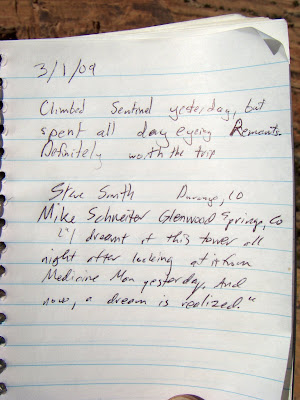 3/1/09
Climbed Sentinel yesterday, but
spent all day eyeing Remnants.
Definitely worth the trip
Steve Smith Durango, CO
Mike Schneiter Glenwood Springs, CO
"I dreamt of this tower all
night after looking at it from
Medicine Man yesterday. And
now, a dream is realized."